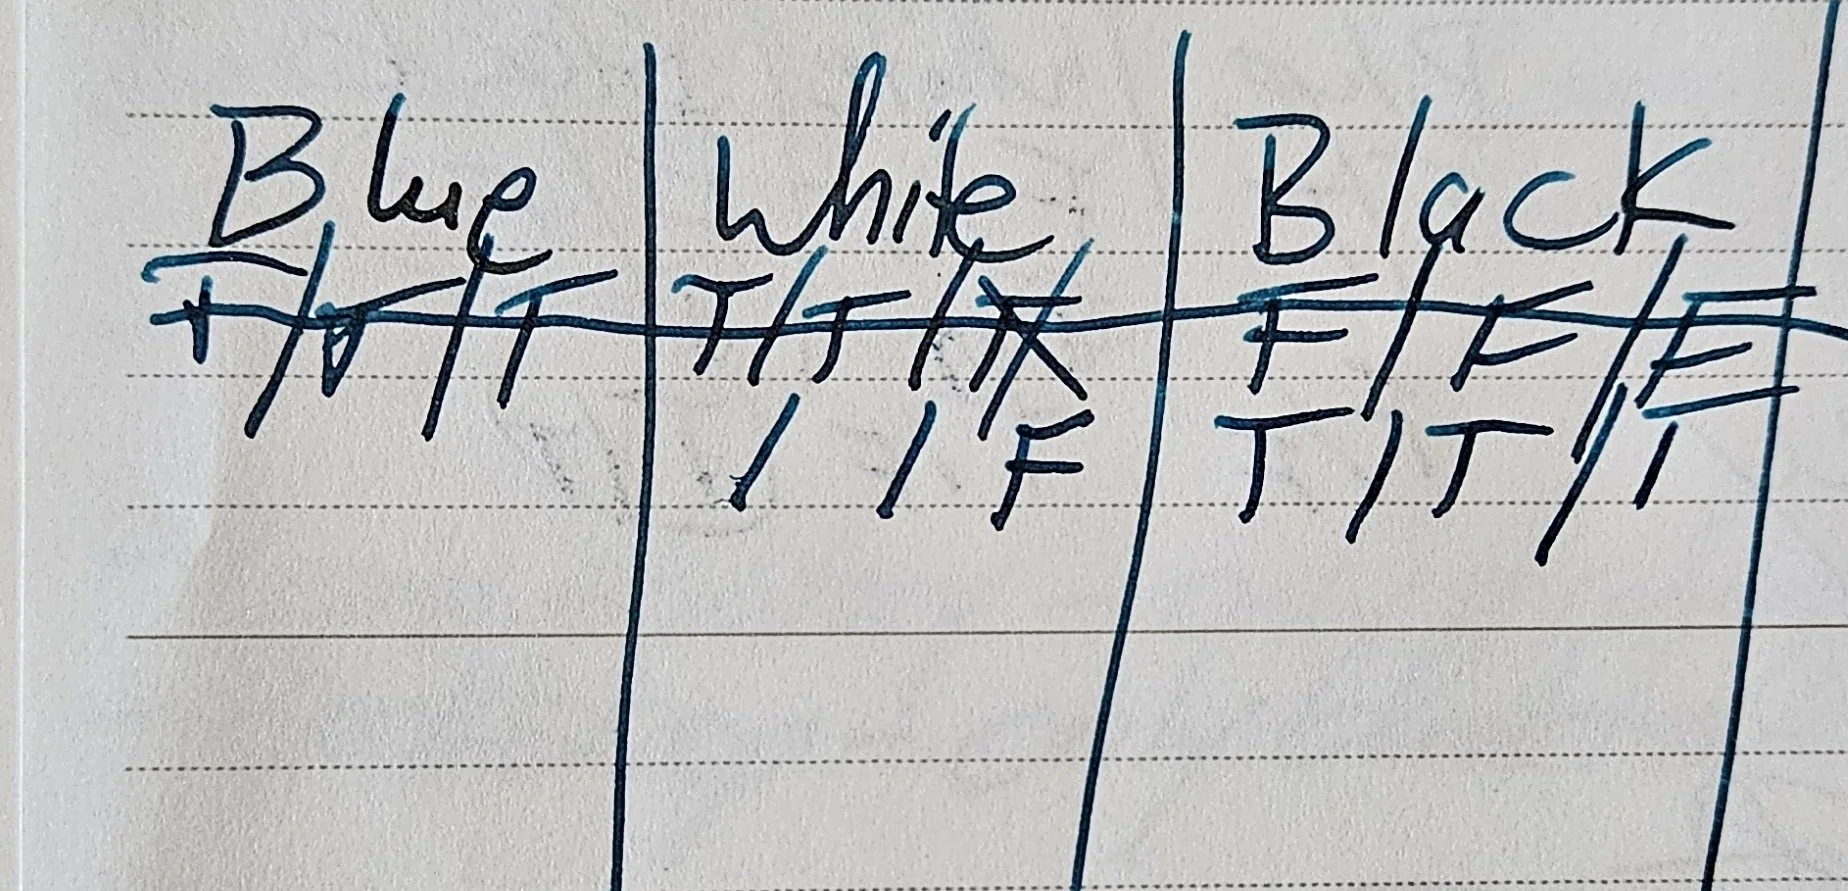 Blue White Black
T/T/T T/T/T/ F/F/F
/ / F T/T/T